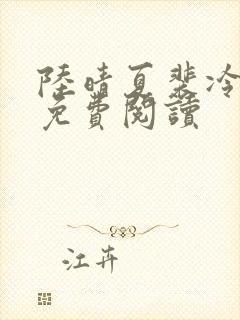 陸晴夏裴冷
免費閱讀
江卉